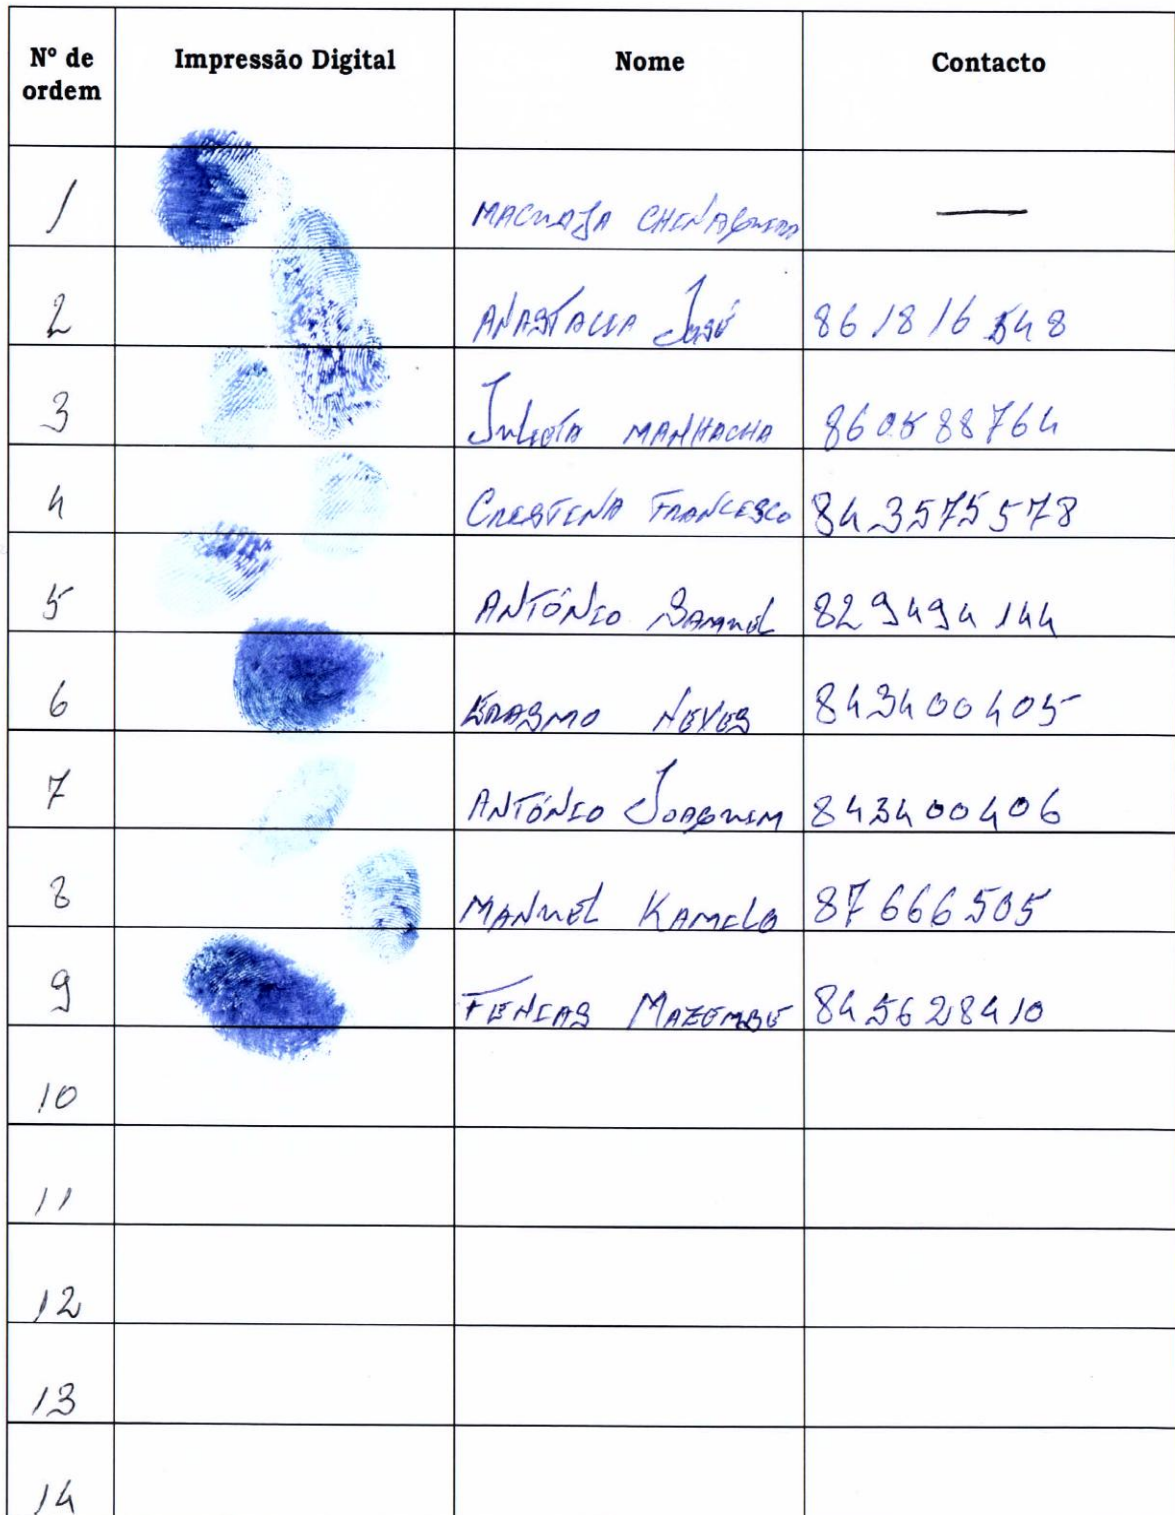 Nº de ordem Impressão Digital Nome Contacto
1 —
2 ANASTACIA José 861816548
3 Julieta MANHACHA 860588764
4 CRISTINA FRANCISCO 843575578
5 ANTÓNIO SAMUEL 829494144
6 ERASMO NEVES 843400405
7 ANTÓNIO JOAQUIM 843400406
8 MANUEL KAMILO 87666505
9 FENIAS MAZEMBE 845628410
10
11
12
13
14